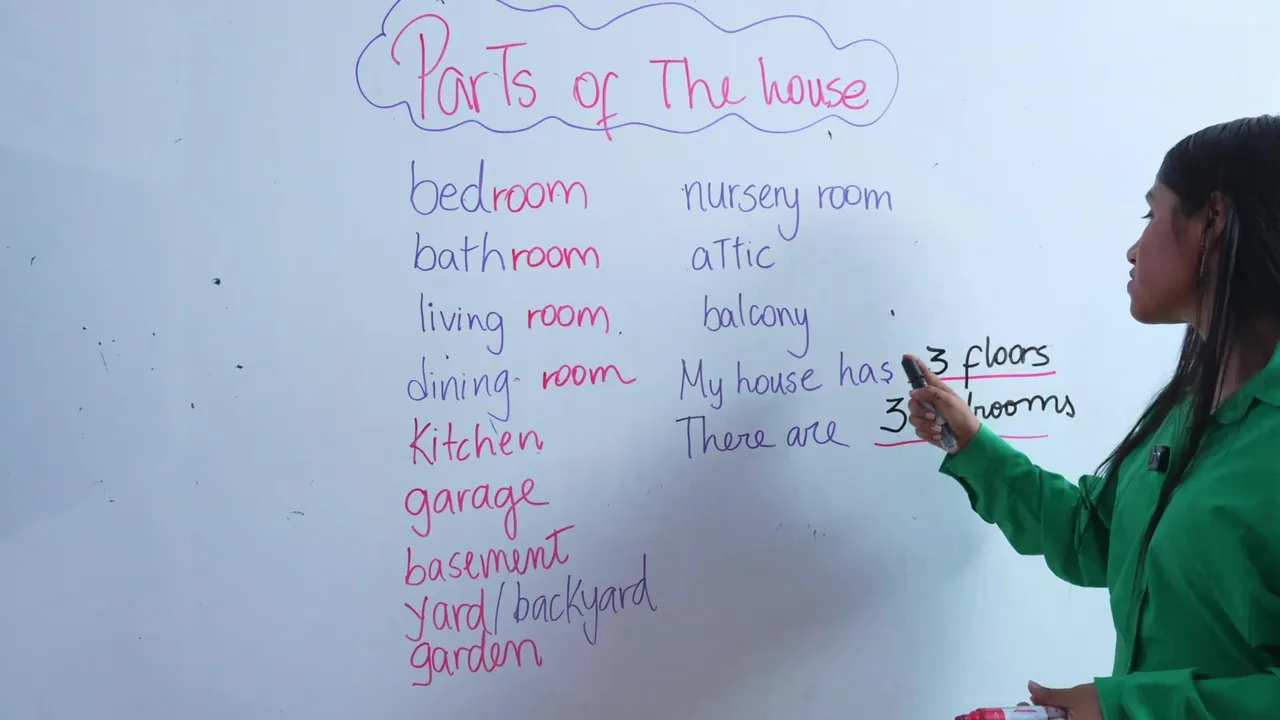 Parts of The house
bedroom
bathroom
living room
dining room
Kitchen
garage
basement
yard/backyard
garden
nursery room
attic
balcony
My house has 3 floors
There are 3